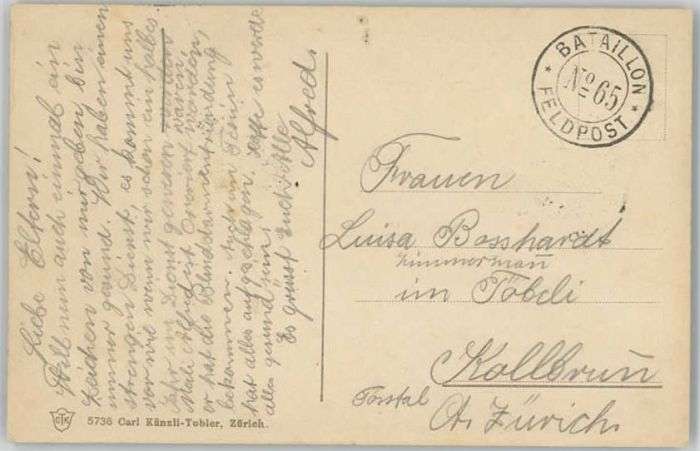 Liebe Eltern!
Will nun auch einmal ein
Zeichen von mir geben, bin
immer gesund. Wir haben einen
strengen Dienst, es kommt uns
vor wie wenn wir schon ein halbes
Jahr im Dienst gewesen wären.
Mali Alfred ist Operiert worden,
er hat die Blinddarmentzündung
bekommen. Auch im Tessin
hat alles aufgeschlagen. Hoffe es werde
alles gesund sein.
Es grüsst Euch Alle
Alfred.
BATAILLON
No 65
FELDPOST
Frauen
Luisa Bosshardt
Zimmermann
im Töbeli
Kollbrunn
Tösstal
Kt. Zürich.
CTK
5736 Carl Künzli-Tobler, Zürich.